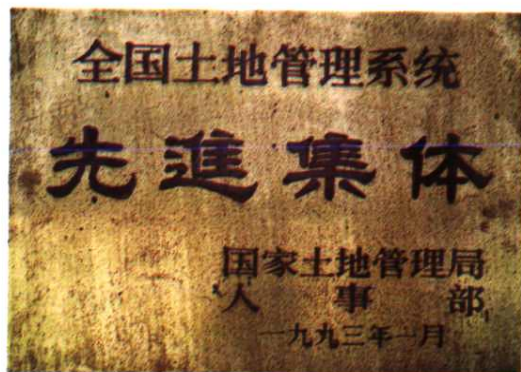 全国土地管理系统
先進集体
国家土地管理局
人事部
一九九三年一月